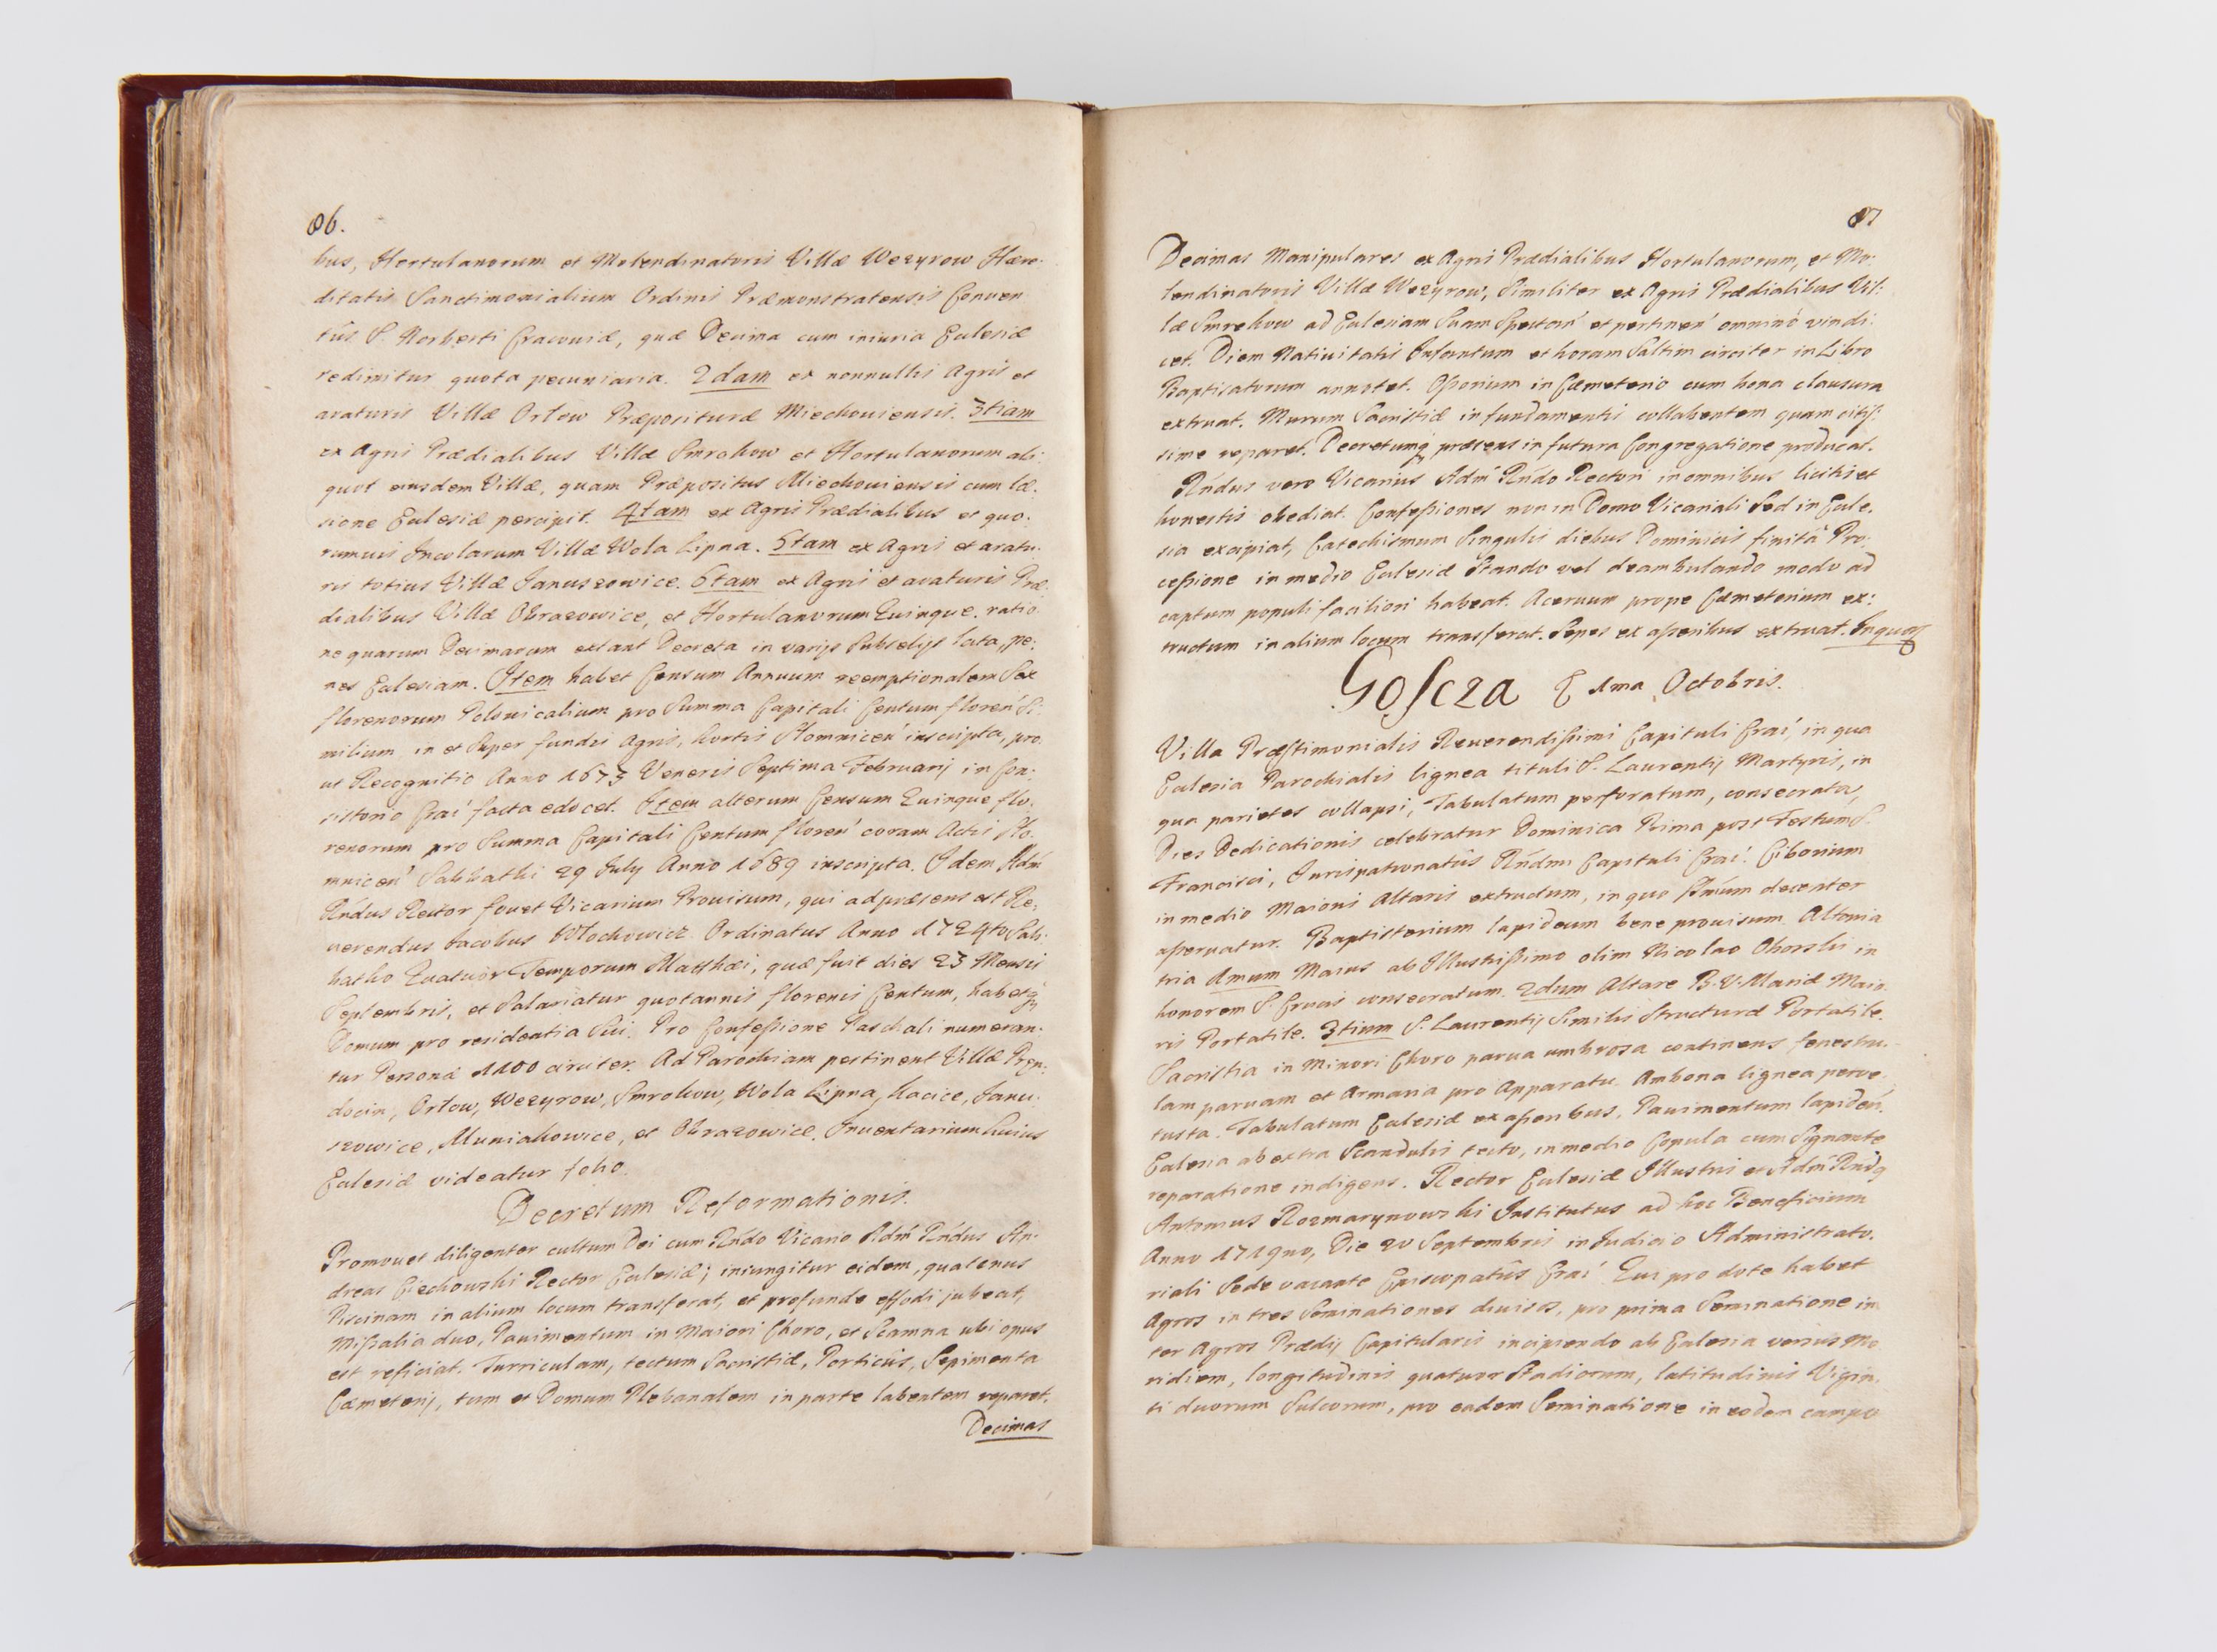 86.
bus, Hortulanorum et Molendinatoris Villæ Wezyrow Hære:
ditatis Sanctimonialium Ordinis Præmonstratensis Conven
tûs S. Norberti Cracoviæ, quæ Decima cum iniuria Ecclesiæ
redimitur quota pecuniaria. 2dam ex nonnullis Agris et
araturis Villæ Orłow Præposituræ Miechoviensis. 3tiam
ex Agris Prædialibus Villæ Smrokow et Hortulanorum ali:
quot eiusdem Villæ, quam Præpositus Miechoviensis cum læ:
sione Ecclesiæ percipit. 4tam ex Agris Prædialibus et quo:
rumvis Incolarum Villæ Wola Lipna. 5tam ex Agris et aratu:
ris totius Villæ Januszowice. 6tam ex Agris et araturis Præ
dialibus Villæ Obrazowice, et Hortulanorum Quinque. ratio
ne quarum Decimarum extant Decreta in varijs Subselijs lata, pe:
nes Ecclesiam. Item habet Censum Annuum reemptionalem Sex
florenorum Polonicalium pro Summa Capitali Centum floren' Si:
milium in et Super fundis Agris, hortis Słomnicen' inscripta, pro
ut Recognitio Anno 1673 Veneris Septima Februarij in Con:
sistorio Crac' facta edocet. Item alterum Censum Quinque flo:
renorum pro Summa Capitali Centum floren' coram Actis Sło:
mnicen' Sabbathi 29 July Anno 1689 inscripta. Idem Adm'
Rńdus Rector fovet Vicarium Provisum, qui ad præsens est Re:
verendus Jacobus Włochowicz. Ordinatus Anno 1724to Sab:
batho Quatuor Temporum Matthæi, quæ fuit dies 23 Mensis
Septembris, et Salariatur quotannis florenis Centum, habetq
Domum pro residentia Sui. Pro Confeßione Paschali numeran:
tur Personæ 1100 circiter. Ad Parochiam pertinent Villæ Pręn:
docin, Orłow, Wezyrow, Smrokow, Wola Lipna, Kacice, Janu:
szowice, Muniakowice, et Obrazowice. Inventarium huius
Ecclesiæ videatur folio.
Decretum Reformationis.
Promovet diligenter cultum Dei cum Rńdo Vicario Adm' Rńdus An:
dreas Ciechowski Rector Ecclesiæ; iniungitur eidem, quatenus
Piscinam in alium locum transferat, et profunde effodi jubeat,
Mißalia duo, Pavimentum in Maiori Choro, et Scamna ubi opus
est reficiat. Turriculam, tectum Sacristiæ, Porticûs, Sepimenta
Cæmeterij, tum et Domum Plebanalem in parte labentem reparet.
Decimas
87
Decimas Manipulares ex Agris Prædialibus Hortulanorum, et Mo:
lendinatoris Villæ Wezyrow, Similiter ex Agris Prædialibus Vil:
læ Smrokow ad Ecclesiam Suam Spectan' et pertinen' omninò vindi:
cet. Diem Nativitatis Infantum et horam Saltim circiter in Libro
Baptisatorum annotet. Oßorium in Cæmeterio cum bona clausura
extruat. Murum Sacristiæ in fundamentis collabentem quam citiß:
sime reparet. Decretumq præsens in futura Congregatione producat.
Rńdus vero Vicarius Adm' Rńdo Rectori in omnibus licitis et
honestis obediat. Confeßiones non in Domo Vicariali Sed in Eccle:
sia excipiat, Catechismum Singulis diebus Dominicis finitâ Pro:
ceßione in medio Ecclesiæ Stando vel deambulando modo ad
captum populi faciliori habeat. Acervum prope Cæmeterium ex:
tructum in alium locum transferat. Sepes ex aßeribus extruat. In quor
Goscza 1ma Octobris.
Villa Præstimonialis Reverendißimi Capituli Crac', in qua
Ecclesia Parochialis lignea tituli S. Laurentij Martyris, in
qua parietes collapsi, Tabulatum perforatum, consecrata,
Dies Dedicationis celebratur Dominica Prima post Festum S.
Francisci, Jurispatronatûs Rńdmi Capituli Crac'. Ciborium
in medio Maioris Altaris extructum, in quo Sßmum decenter
aßervatur. Baptisterium lapideum bene provisum. Altaria
tria 1mum Maius ab Illustrißimo olim Nicolao Oborski in
honorem S. Crucis consecratum. 2dum Altare B. V. Mariæ Maio
ris Portatile. 3tium S. Laurentij Similis Structuræ Portatile.
Sacristia in Minori Choro parva umbrosa continens fenestru:
lam parvam et Armaria pro Apparatu. Ambona lignea perve:
tusta. Tabulatum Ecclesiæ ex aßeribus, Pavimentum lapideu'.
Ecclesia ab extra Scandulis tecta, in medio Copula cum Signante
reparatione indigens. Rector Ecclesiæ Illustris et Adm' Rńdq
Antonius Rozmarynowski Institutus ad hoc Beneficium
Anno 1719no, Die 20 Septembris in Judicio Administrato:
riali Sede vacante Episcopatûs Crac'. Qui pro dote habet
Agros in tres Seminationes divisos, pro prima Seminatione in
ter Agros Prædij Capitularis incipiendo ab Ecclesia versus Me
ridiem, longitudinis quatuor Stadiorum, latitudinis Vigin:
ti duorum Sulcorum, pro eadem Seminatione in eodem campo